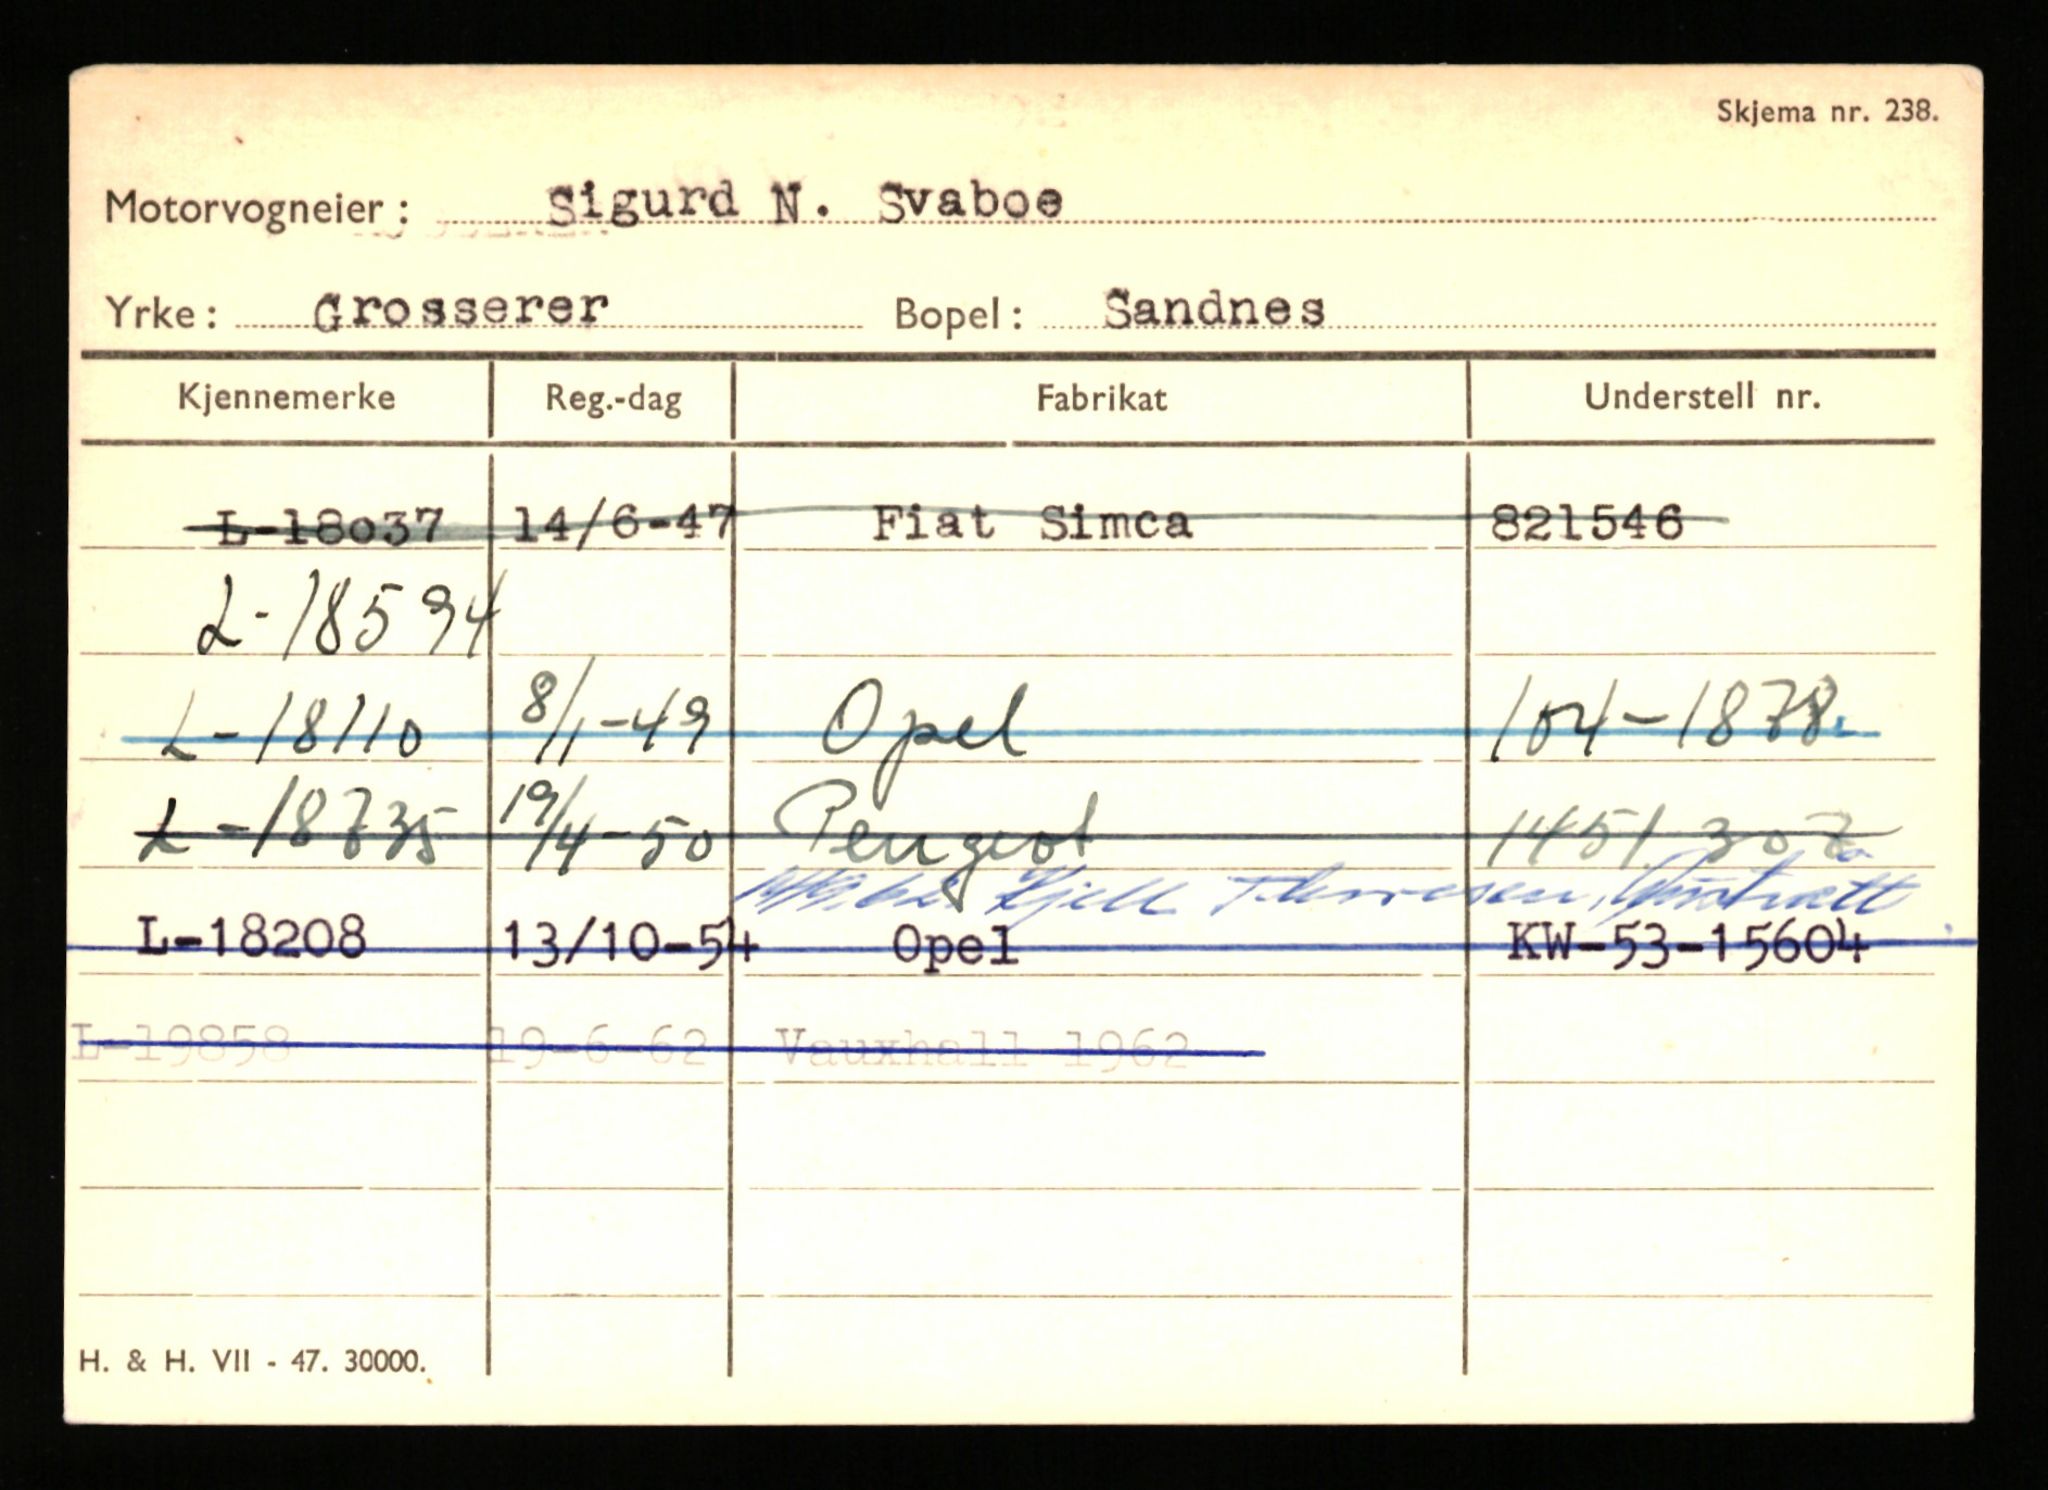 Skjema nr. 238.
Motorvogneier: Sigurd N. Svaboe
Yrke: Grosserer Bopel: Sandnes
Kjennemerke Reg.-dag Fabrikat Understell nr.
L-18037 14/6-47 Fiat Simca 821546
L-18594
L-18110 8/1-49 Opel 104-1878
L-18735 19/4-50 Peugeot 1451307
Kjell
L-18208 13/10-54 Opel KW-53-15604
L-19858 19-6-62 Vauxhall 1962
H. & H. VII - 47. 30000.